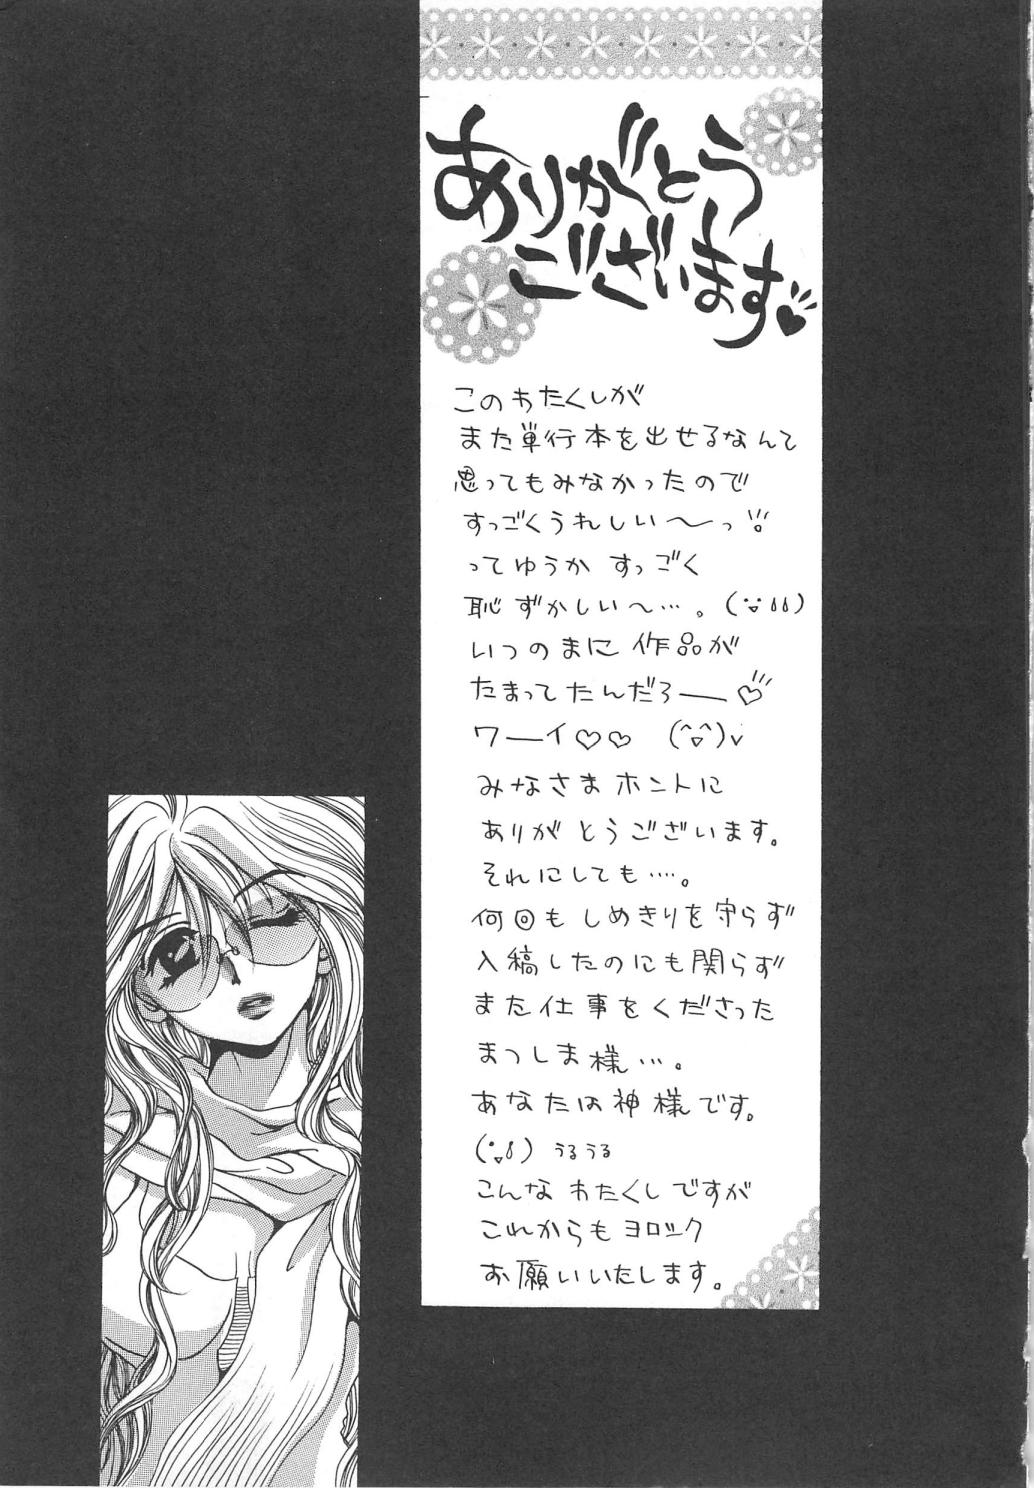 ありがとう
ございます♡
このわたくしが
また単行本を出せるなんて
思ってもみなかったので
すっごくうれしい〜っ!!
ってゆうか すっごく
恥ずかしい〜…。
いつのまに作品が
たまってたんだろ——♡
ワーイ♡♡ (^▽^)v
みなさまホントに
ありがとうございます。
それにしても…。
何回もしめきりを守らず
入稿したのにも関らず
また仕事をくださった
まつしま様…。
あなたは神様です。
うるうる
こんなわたくしですが
これからもヨロシク
お願いいたします。